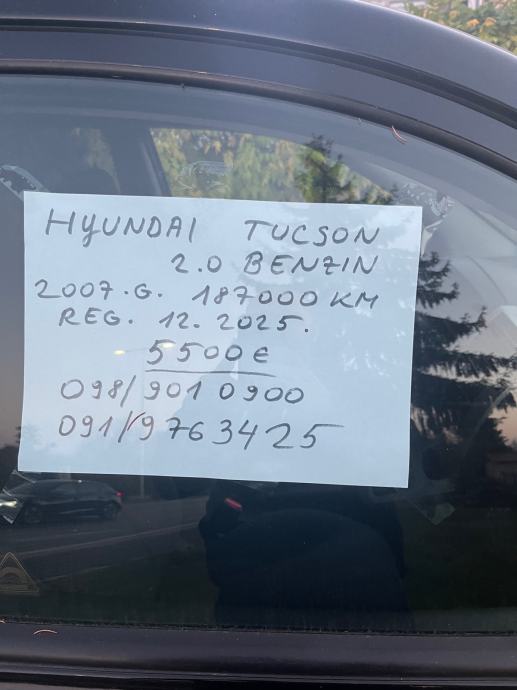 HYUNDAI TUCSON
2.0 BENZIN
2007.G. 187000 KM
REG. 12. 2025.
5500€
098/901 0900
091/9763425